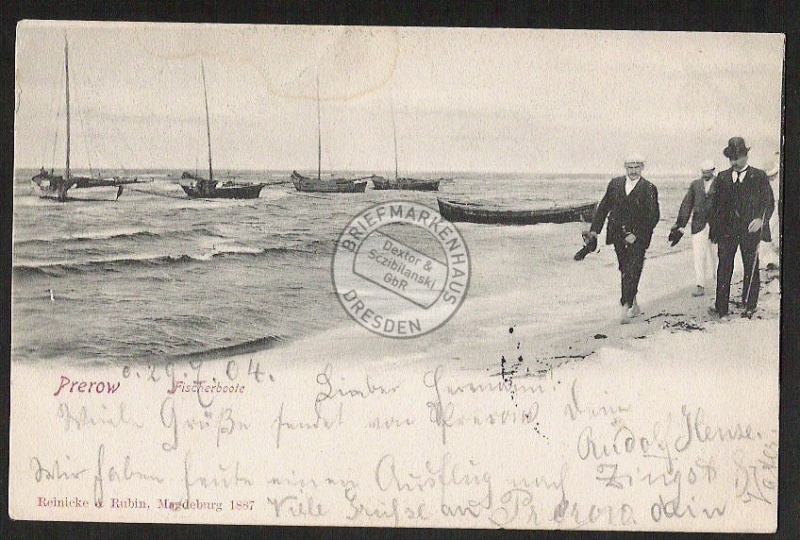 BRIEFMARKENHAUS
Dexter &
Sczibilanski
GbR
DRESDEN
Prerow Fischerboote
d. 29.7.04. Lieber Hermann!
Viele Grüße sendet von Prerow Dein
Rudolf Hense.
Wir haben heute einen Ausflug nach Zingst
Reinicke & Rubin, Magdeburg 1887
Viele Grüsse an Dein